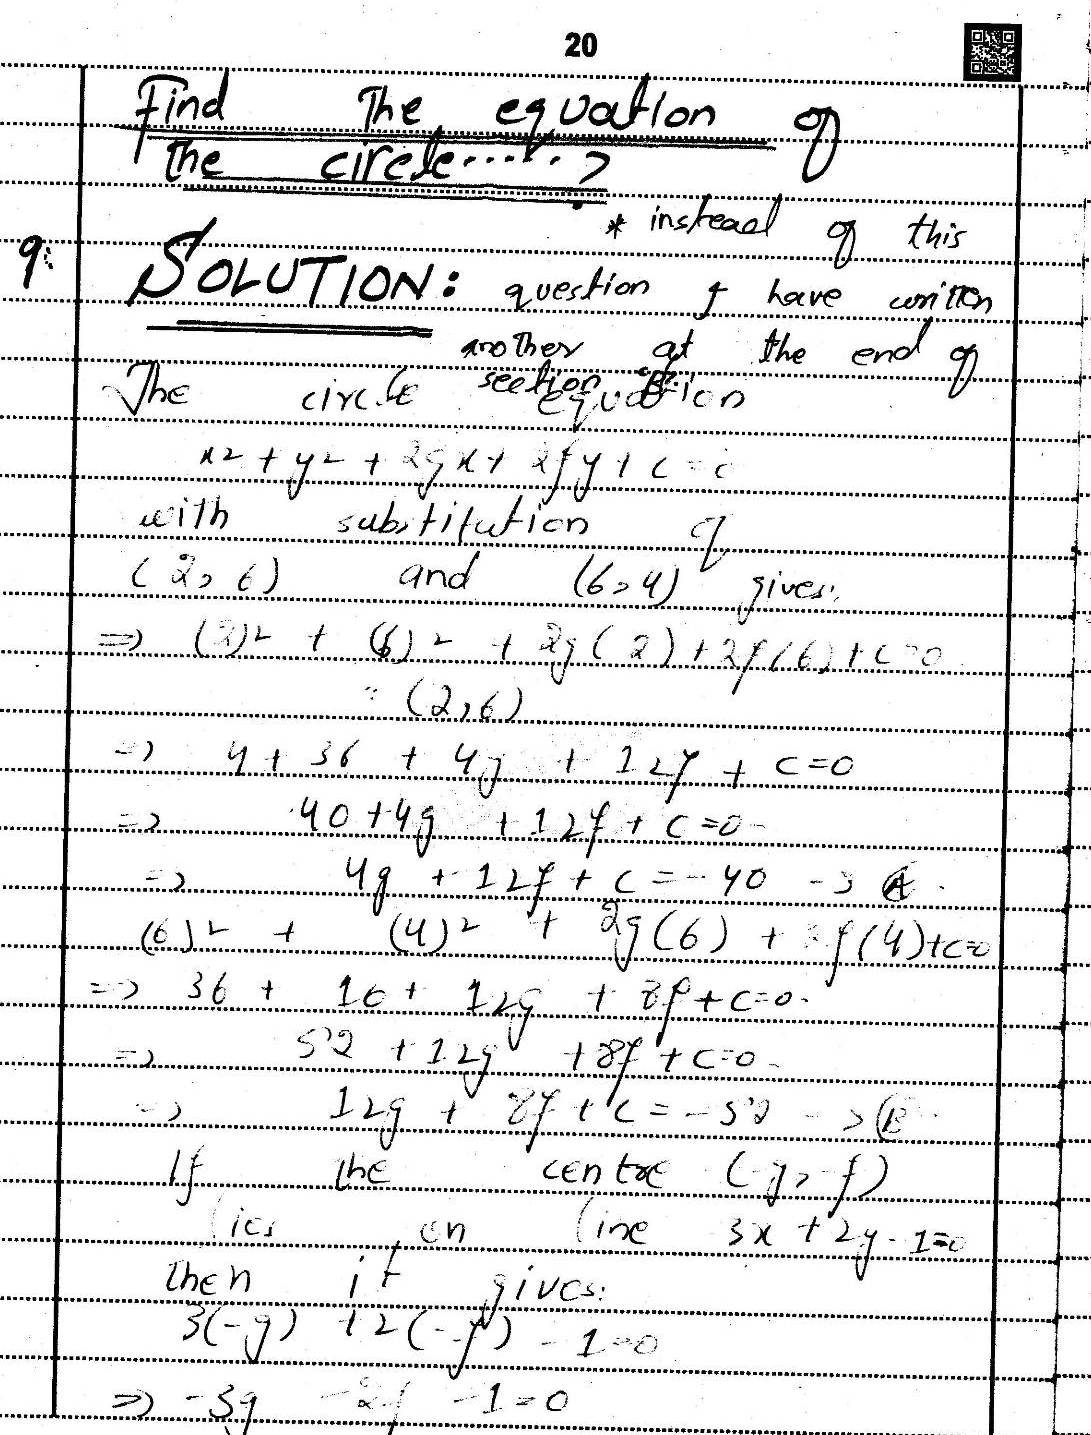 20
Find The equation of
The circle......?
* instead of this
9:
SOLUTION: question I have written
another at the end of
section "B".
The circle equation
x2 + y2 + 2gx + 2fy + c = 0
with substitution of
(2, 6) and (6, 4) gives:
=> (2)2 + (6)2 + 2g(2) + 2f(6) + c = 0
∵ (2, 6)
=> 4 + 36 + 4g + 12f + c = 0
=> 40 + 4g + 12f + c = 0
=> 4g + 12f + c = -40 -> A
(6)2 + (4)2 + 2g(6) + 2f(4) + c = 0
=> 36 + 16 + 12g + 8f + c = 0
=> 52 + 12g + 8f + c = 0
=> 12g + 8f + c = -52 -> B
If the centre (-g, -f)
lies on line 3x + 2y - 1 = 0
then it gives:
3(-g) + 2(-f) - 1 = 0
=> -3g - 2f - 1 = 0